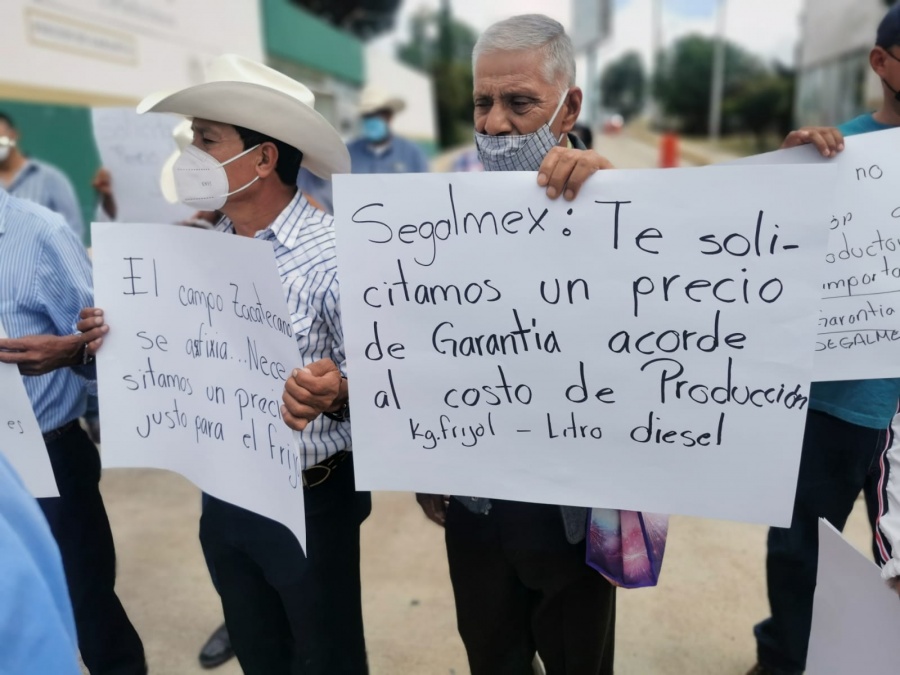 El
campo Zacatecano
se asfixia...Nece
sitamos un preci
justo para el Frij
Segalmex: Te soli-
citamos un precio
de Garantia acorde
al costo de Producción
kg.frijol - Litro diesel
no
importa
Garantia
SEGALME
es